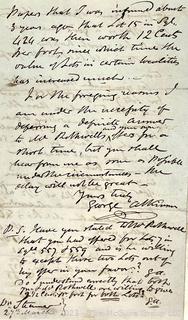 papers that I was informed about
3 years ago that Lot 15 in Bl.
424 was then worth 12 Cents
per foot, since which time the
value of Lots in certain localities
has increased much.
For the foregoing reasons I
am under the necessity of
deferring a definite answer
to Mr Rothwell's and your own for a
short time, but you shall
hear from me as soon as possible
under the circumstances - the
delay will not be great -
Yours truly
George Atkinson
P.S. Have you stated to Mr Rothwell
that you had offered for Lots in
Sqre 807 & 853 and if I am willing
to accept those two Lots out of
my offer in your favor? G.A.
Do I understand exactly that both
you & Mr Rothwell are willing to give
per foot for both Lots G.A.
27th March